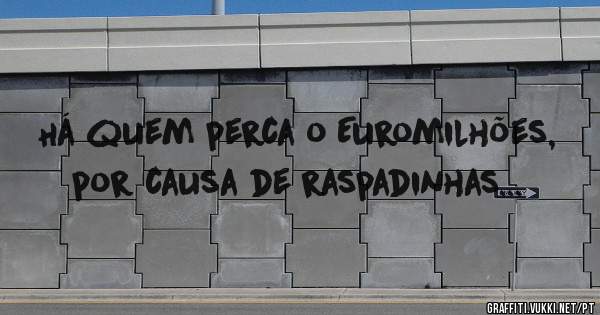 HÁ QUEM PERCA O EUROMILHÕES,
POR CAUSA DE RASPADINHAS...
GRAFFITI.VUKKI.NET/PT